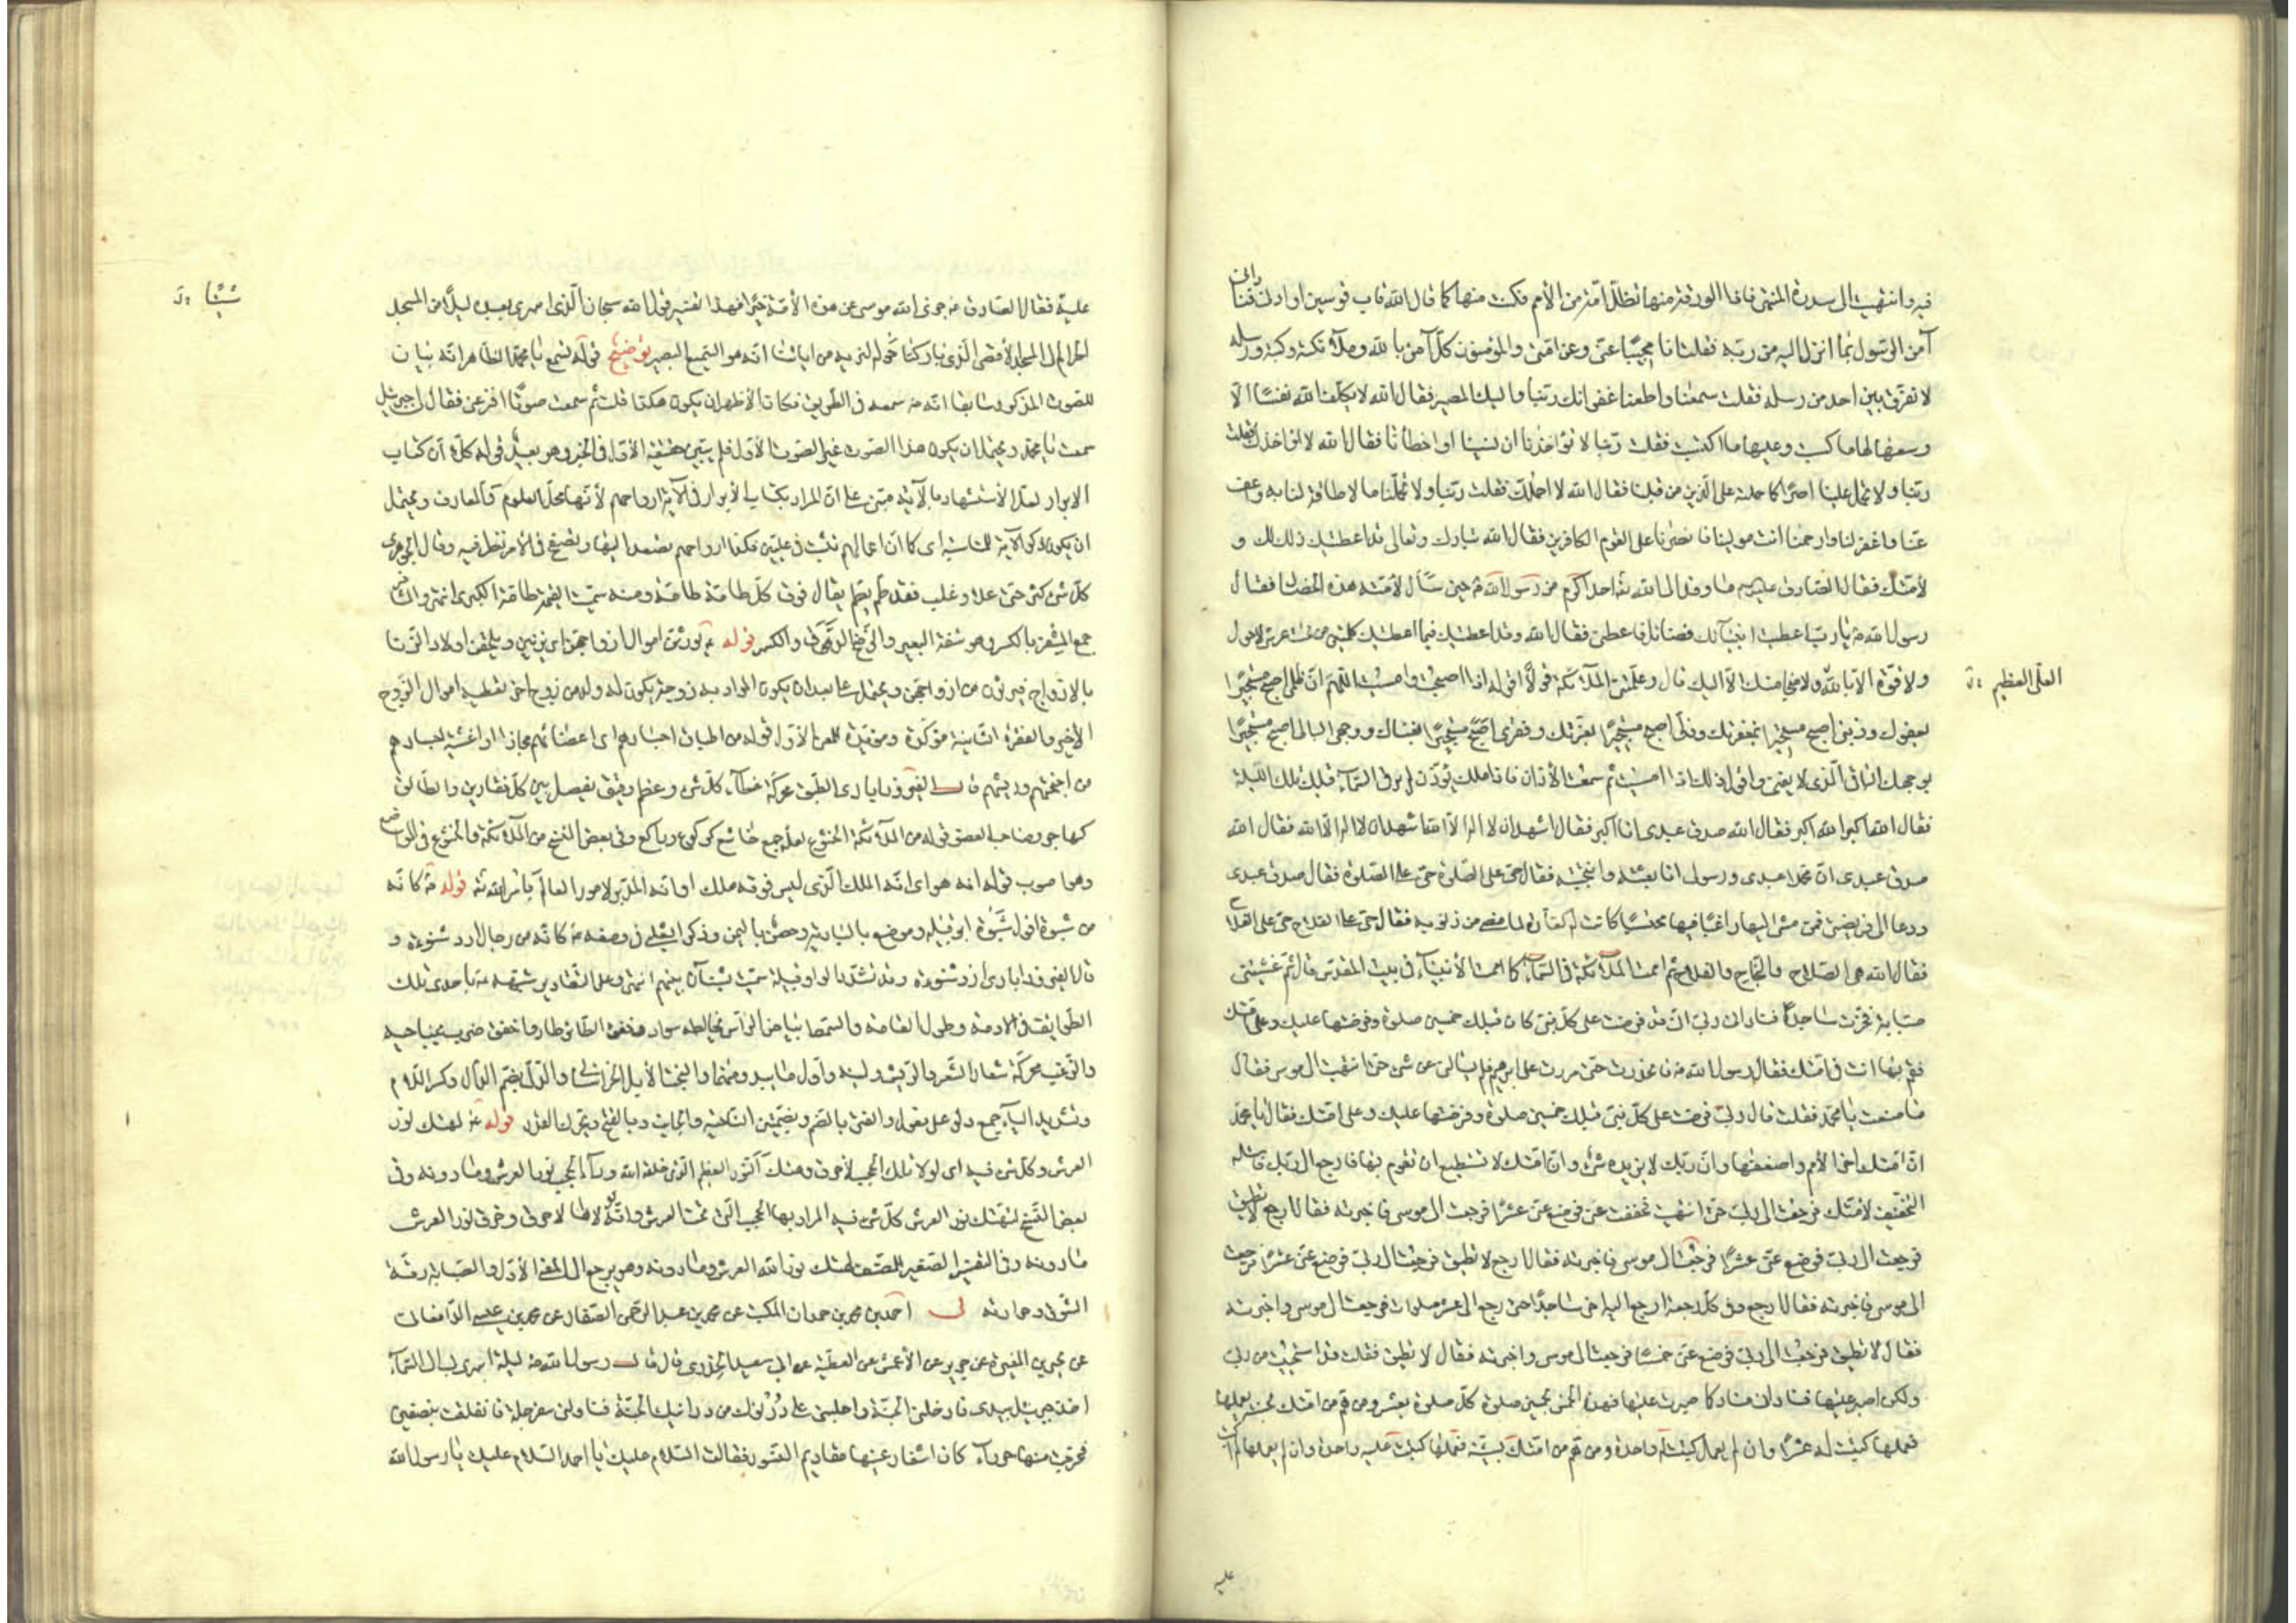 فيه وانتهيت الى سدرة المنتهى فاذا الورقة منها تظلّ امّة من الأمم فكنت منها كما قال الله قاب قوسين او ادنى فنادانى
آمن الرسول بما انزل اليه من ربّه فقلت انا مجيبًا عنّى وعن امّتى والمؤمنون كلّ آمن بالله وملآئكته وكتبه ورسله
لا نفرّق بين احد من رسله فقلت سمعنا واطعنا غفرانك ربّنا واليك المصير فقال الله لا يكلّف الله نفسًا الّا
وسعها لها ما كسبت وعليها ما اكتسبت فقلت ربّنا لا تؤاخذنا ان نسينا او اخطأنا فقال الله لا اؤاخذك فقلت
ربّنا ولا تحمل علينا اصرًا كما حملته على الّذين من قبلنا فقال الله لا احملك فقلت ربّنا ولا تحمّلنا ما لا طاقة لنا به واعف
عنّا واغفر لنا وارحمنا انت مولينا فانصرنا على القوم الكافرين فقال الله تبارك وتعالى قد اعطيتك ذلك لك و
لأمّتك فقال الصّادق ما وفد الى الله احد اكرم من رسول الله حين سأل لأمّته هذه الخصال فقال
رسول الله يا ربّ اعطيت انبيآئك فضائل فاعطنى فقال الله وقد اعطيتك فيما اعطيتك كلمتين من تحت عرشى لا حول
ولا قوّة الّا بالله ولا منجا منك الّا اليك قال وعلّمتنى الملآئكة قولًا اقوله اذا اصبحت وامسيت اللّهمّ انّ ظلمى اصبح مستجيرًا
العلىّ العظيم
بعفوك وذنبى اصبح مستجيرًا بمغفرتك وذلّى اصبح مستجيرًا بعزّتك وفقرى اصبح مستجيرًا بغناك ووجهى البالى اصبح مستجيرًا
بوجهك الباقى الّذى لا يفنى واقول ذلك اذا امسيت ثم سمعت الأذان فاذا ملك يؤذّن لم ير فى السّمآء قبل تلك اللّيلة
فقال الله اكبر الله اكبر فقال الله صدق عبدى انا اكبر فقال اشهد ان لا اله الّا الله اشهد ان لا اله الّا الله فقال الله
صدق عبدى انّ محمّدا عبدى ورسولى انا بعثته وانتجبته فقال حىّ على الصّلوة حىّ على الصّلوة فقال صدق عبدى
ودعا الى فريضتى فمن مشى اليها راغبًا فيها محتسبًا كانت له كفّارة لما مضى من ذنوبه فقال حىّ على الفلاح حىّ على الفلاح
فقال الله هى الصّلاح والنّجاح والفلاح ثم اممت الملآئكة فى السّمآء كما اممت الأنبيآء فى بيت المقدّس قال ثمّ غشيتنى
صبابة فخررت ساجدًا فنادانى ربّى انّى قد فرضت على كلّ نبىّ كان قبلك خمسين صلوة وفرضتها عليك وعلى امّتك
فقم بها انت فى امّتك فقال رسول الله فانحدرت حتى مررت على ابرهيم فلم يسألنى عن شئ حتى انتهيت الى موسى فقال
ما صنعت يا محمّد فقلت قال ربّى فرضت على كلّ نبىّ قبلك خمسين صلوة وفرضتها عليك وعلى امّتك فقال يا محمّد
انّ امّتك اخر الأمم واضعفها وانّ ربّك لا يزيده شئ وانّ امّتك لا تستطيع ان تقوم بها فارجع الى ربّك فاسئله
التّخفيف لأمّتك فرجعت الى ربّى حتى انتهيت فوضع عنّى عشرًا فرجعت الى موسى فاخبرته فقال ارجع لا تطيق
فرجعت الى ربّى فوضع عنّى عشرًا فرجعت الى موسى فاخبرته فقال ارجع لا تطيق فرجعت الى ربّى فوضع عنّى عشرًا فرجعت
الى موسى فاخبرته فقال ارجع وفى كلّ رجعة ارجع اليه اخرّ ساجدًا حتى رجع الى عشر صلوات فرجعت الى موسى واخبرته
فقال لا تطيق فرجعت الى ربّى فوضع عنّى خمسًا فرجعت الى موسى واخبرته فقال لا تطيق فقلت قد استحييت من ربّى
ولكن اصبر عليها فنادانى مناد كما صبرت عليها فهذه الخمس بخمسين صلوة كلّ صلوة بعشر ومن همّ من امّتك بحسنة يعملها
فعملها كتبت له عشرًا وان لم يعمل كتبت له واحدة ومن همّ من امّتك بسيّئة فعملها كتبت عليه واحدة وان لم يعملها لم اكتب
عليه
عليه فقال الصّادق جزى الله موسى عن هذه الأمّة خيرًا فهذا تفسير قول الله سبحان الّذى اسرى بعبده ليلًا من المسجد
شيئا
الحرام الى المسجد الأقصى الّذى باركنا حوله لنريه من اياتنا انّه هو السّميع البصير توضيح قوله تسمع يا محمّد الظّاهر انّه بيان
للصوت المذكور سابقا انّه سمعه فى الطّريق فكان الأظهر ان يكون هكذا قلت ثم سمعت صوتًا افزعنى فقال لى جبرئيل
سمعت يا محمّد ويحتمل ان يكون هذا الصّوت غير الصّوت الأوّل فلم يتبيّن حقيقة الأوّل فى الخبر وهو بعيد قوله كلّا انّ كتاب
الابرار لعلّ الأستشهاد بالآية مبنىّ على انّ المراد بكتاب الأبرار فى الآية ارواحهم لأنّها محلّ العلوم والمعارف ويحتمل
ان يكون ذكر الآية للمناسبة اى كما انّ اعمالهم تثبت فى علّيّين فكذا ارواحهم يصعد اليها وتصفّح فى الأمر نظر فيه وقال الجوهرى
كلّ شئ كثر حتى علا وغلب فقد طمّ يطمّ يقال فوق كلّ طامّة طامّة ومنه سمّيت القيمة طامّة الكبرى انتهى والمشافر
جمع المشفر بالكسر وهو شفة البعير قوله يورثن اموال ازواجهنّ اى يزنين ويلحقن اولاد الزّنا
بالازواج فيرثون من ازواجهنّ ويحتمل على بعد ان يكون المراد به زوجة يكون له ولد من زوج اخر تعطيه اموال الزّوج
الأخير والفقرة الثّانية مؤكّدة ومؤيّدة للمعنى الأوّل قوله من اطباق اجسادهم اى اعضائهم مجازا او اغشية اجسادهم
من اجنحتهم وريشهم قال الفيروزابادى الطّبق محرّكة غطآء كلّ شئ وعظم رقيق يفصل بين كلّ فقارين والطّابق
كهاجر وصاحب العضو قوله من الملآئكة الخشوع لعلّه جمع خاشع كركوع وراكع وفى بعض النّسخ من الملآئكة والخشوع فى المواضع
وهو اصوب قوله انه هو اى انّه الملك الّذى ليس فوقه ملك او انّه المدبّر لامور العالم بأمر الله قوله كانّه
من شنوة اقول شنوة ابو قبيلة وموضع بالبادية وحصن باليمن وذكر الثعلبى فى وصفه كانّه من رجال ازد شنوءة و
قال الفيروزابادى ازد شنوءة وقد تشدّد الواو قبيلة سمّيت لشنآن بينهم انتهى وعلى التّقادير شبّهه باحدى تلك
الطّوايف فى الادمة وطول القامة والشمط بياض الرأس يخالطه سواد وخفق الطّائر طار واخفق ضرب بجناحيه
والزّغب محرّكة صغار الشّعر والرّيش ولينه واوّل ما يبدو منهما والبخت الأبل الخراسانيّة والدّلىّ بضمّ الدّال وكسر اللّام
وتشديد اليآء جمع دلو على فعول والفتق بالضم وبضمّتين النّاحية والجانب وبالفتح قوله لهتك نور
العرش وكلّ شئ فيه اى لولا تلك الحجب لأحرق وهتك النّور العظيم الّذى خلقه الله ورآء الحجب نور العرش وما دونه وفى
بعض النّسخ لتهتّك نور العرش كلّ شئ فيه المراد بها الحجب الّتى تحت العرش وانّه لولاها لاحرق وخرق نور العرش
ما دونه وفى التفسير الصّغير للمصنّف لهتك نور الله العرش وما دونه وهو يرجع الى المعنى الأوّل والصّبابة رقّة
الشّوق وحرارته لى احمد بن محمد بن حمدان المكتب عن محمد بن عبد الرحمن الصّفّار عن محمد بن عيسى الدّامغانى
عن يحيى بن المغيرة عن جرير عن الأعمش عن عطيّة عن ابى سعيد الخدرى قال قال رسول الله ليلة اسرى بى الى السّمآء
اخذ جبرئيل بيدى فادخلنى الجنّة واجلسنى على درنوك من درانيك الجنّة فناولنى سفرجلة فانفلقت بنصفين
فخرجت منها حورآء كان اشفار عينها مقاديم النّسور فقالت السّلام عليك يا احمد السّلام عليك يا رسول الله